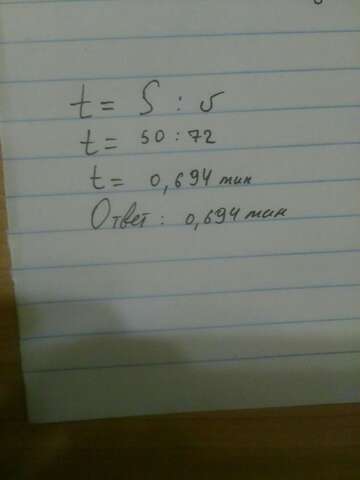 t = S : υ
t = 50 : 72
t = 0,694 мин
Ответ : 0,694 мин